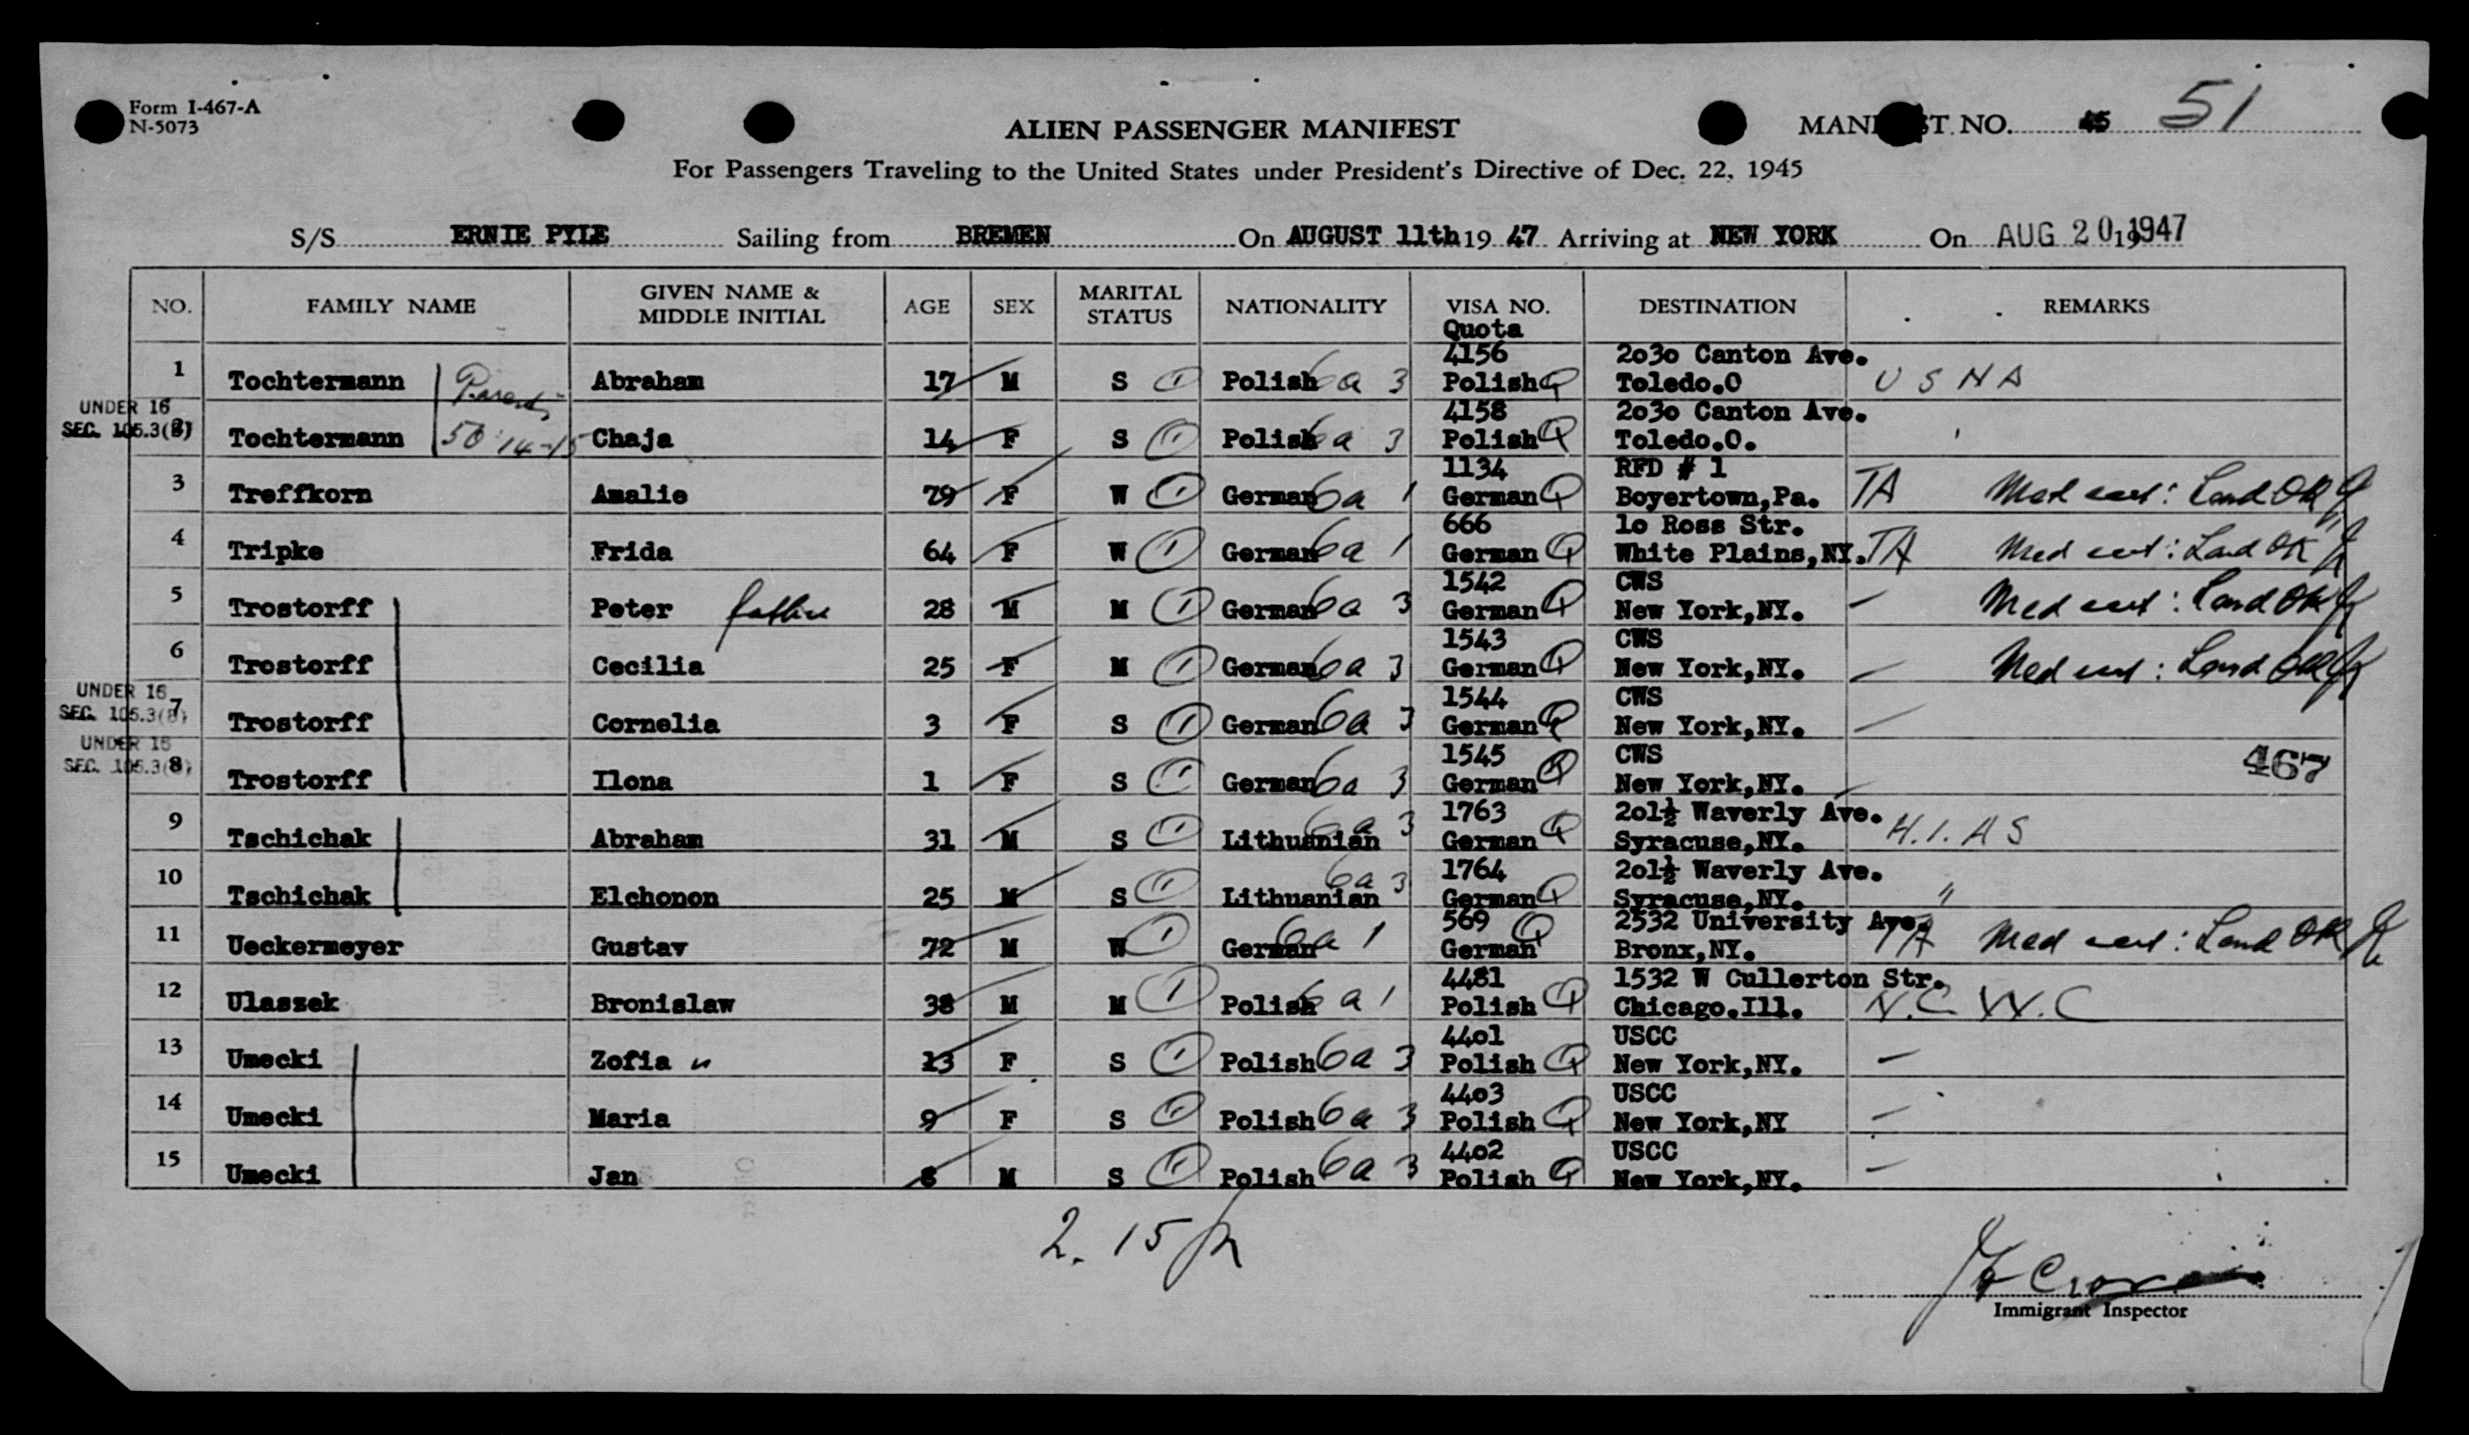 Form I-467-A
N-5073
ALIEN PASSENGER MANIFEST
MANIFEST NO. 45 51
For Passengers Traveling to the United States under President's Directive of Dec. 22, 1945
S/S ERNIE PYLE Sailing from BREMEN On AUGUST 11th 19 47 Arriving at NEW YORK On AUG 20 1947
NO. FAMILY NAME GIVEN NAME & MIDDLE INITIAL AGE SEX MARITAL STATUS NATIONALITY VISA NO. DESTINATION REMARKS
Quota
4156 2o3o Canton Ave.
1 Tochtermann Parents Abraham 17 M S 1 Polish 6a 3 Polish Q Toledo.O U S N A
UNDER 16
4158 2o3o Canton Ave.
SEC. 105.3(B) 2 Tochtermann 50:14-15 Chaja 14 F S 1 Polish 6a 3 Polish Q Toledo.O. '
1134 RFD # 1
3 Treffkorn Amalie 79 F W 1 German 6a 1 German Q Boyertown,Pa. TA Med cert: Land OK
666 1o Ross Str.
4 Tripke Frida 64 F W 1 German 6a 1 German Q White Plains,NY. TA Med cert: Land OK
1542 CWS
5 Trostorff Peter father 28 M M 1 German 6a 3 German Q New York,NY. – Med cert: Land OK
1543 CWS
6 Trostorff Cecilia 25 F M 1 German 6a 3 German Q New York,NY. – Med cert: Land OK
UNDER 16
1544 CWS
SEC. 105.3(B) 7 Trostorff Cornelia 3 F S 1 German 6a 3 German Q New York,NY. –
UNDER 16
1545 CWS
467
SEC. 105.3(B) 8 Trostorff Ilona 1 F S 1 German 6a 3 German Q New York,NY. –
1763 2o1½ Waverly Ave.
9 Tschichak Abraham 31 M S 1 Lithuanian 6a 3 German Q Syracuse,NY. H.I.A S
1764 2o1½ Waverly Ave.
10 Tschichak Elchonon 25 M S 1 Lithuanian 6a 3 German Q Syracuse,NY. "
569 2532 University Ave.
11 Ueckermeyer Gustav 72 M W 1 German 6a 1 German Q Bronx,NY. TA Med cert: Land OK
4481 1532 W Cullerton Str.
12 Ulaszek Bronislaw 38 M M 1 Polish 6a 1 Polish Q Chicago.Ill. N.C.W.C
44o1 USCC
13 Umecki Zofia 13 F S 1 Polish 6a 3 Polish Q New York,NY. –
44o3 USCC
14 Umecki Maria 9 F S 1 Polish 6a 3 Polish Q New York,NY –
44o2 USCC
15 Umecki Jan M S 1 Polish 6a 3 Polish Q New York,NY. –
2. 15
Immigrant Inspector